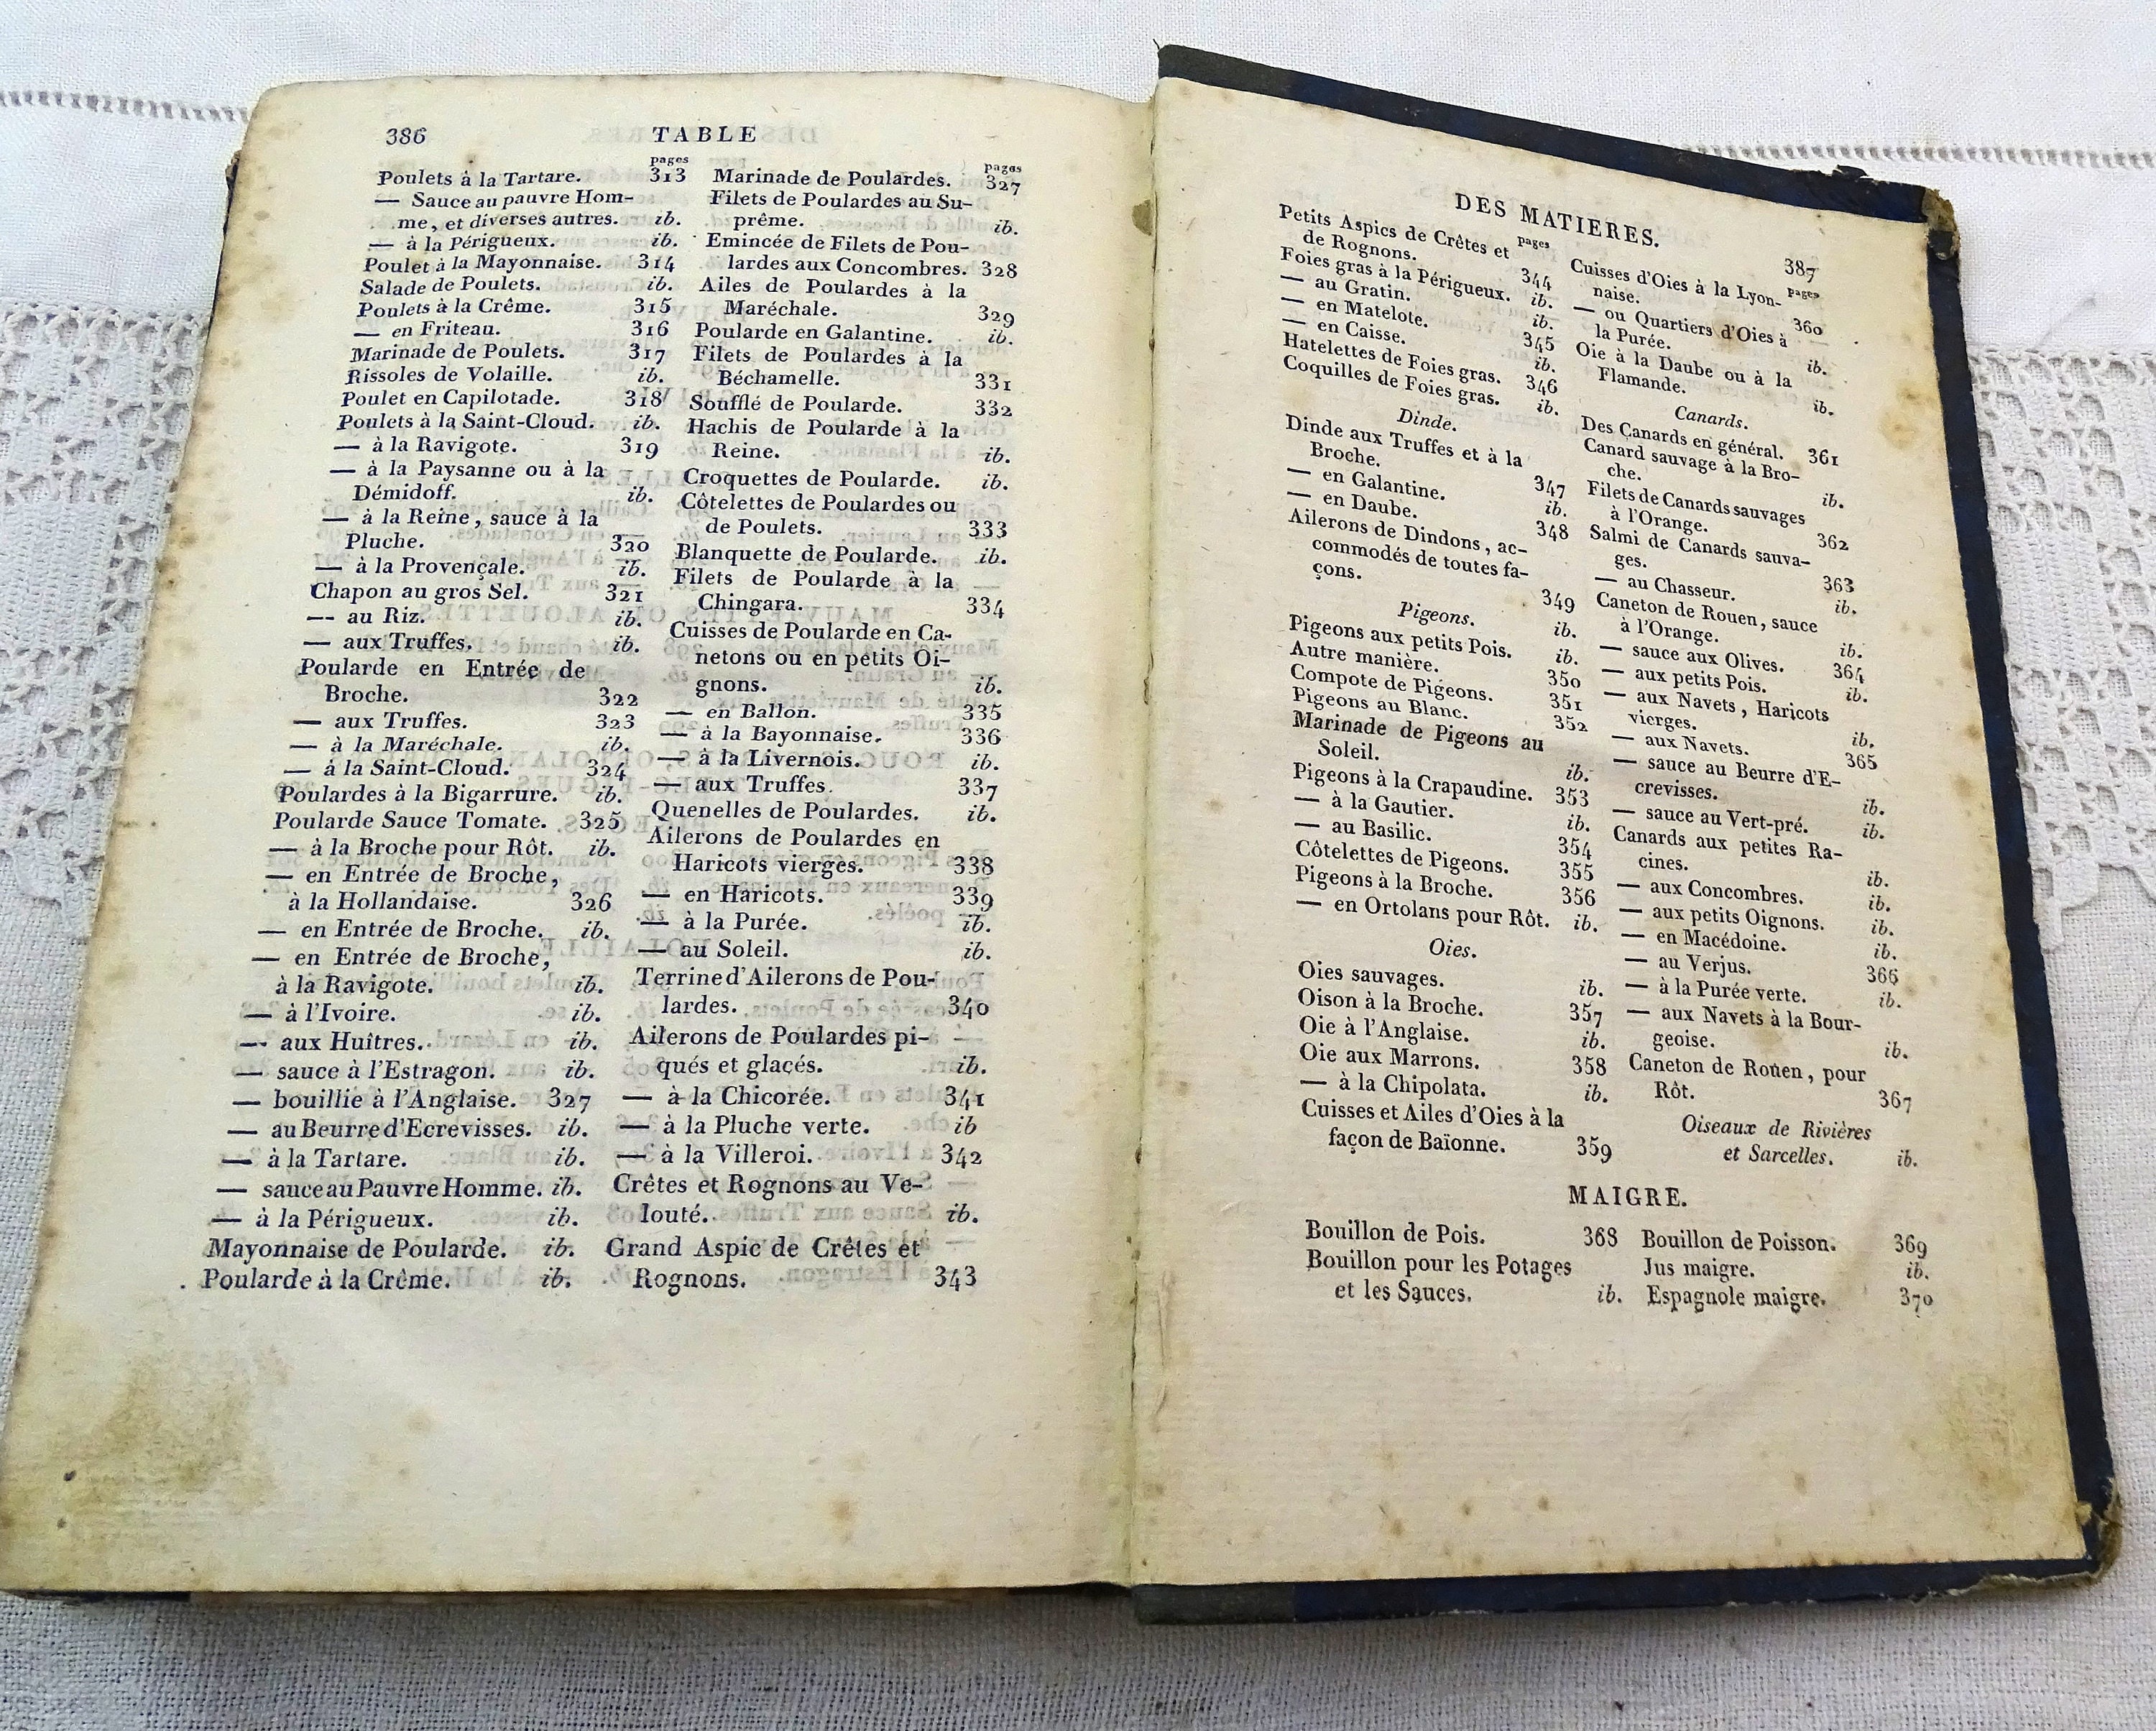 386 TABLE
pages
Poulets à la Tartare. 313
— Sauce au pauvre Hom-
me, et diverses autres. ib.
— à la Périgueux. ib.
Poulet à la Mayonnaise. 314
Salade de Poulets. ib.
Poulets à la Crême. 315
— en Friteau. 316
Marinade de Poulets. 317
Rissoles de Volaille. ib.
Poulet en Capilotade. 318
Poulets à la Saint-Cloud. ib.
— à la Ravigote. 319
— à la Paysanne ou à la
Démidoff. ib.
— à la Reine, sauce à la
Pluche. 320
— à la Provençale. ib.
Chapon au gros Sel. 321
— au Riz. ib.
— aux Truffes. ib.
Poularde en Entrée de
Broche. 322
— aux Truffes. 323
— à la Maréchale. ib.
— à la Saint-Cloud. 324
Poulardes à la Bigarrure. ib.
Poularde Sauce Tomate. 325
— à la Broche pour Rôt. ib.
— en Entrée de Broche,
à la Hollandaise. 326
— en Entrée de Broche. ib.
— en Entrée de Broche,
à la Ravigote. ib.
— à l'Ivoire. ib.
— aux Huîtres. ib.
— sauce à l'Estragon. ib.
— bouillie à l'Anglaise. 327
— au Beurre d'Ecrevisses. ib.
— à la Tartare. ib.
— sauce au Pauvre Homme. ib.
— à la Périgueux. ib.
Mayonnaise de Poularde. ib.
Poularde à la Crême. ib.
pages
Marinade de Poulardes. 327
Filets de Poulardes au Su-
prême. ib.
Emincée de Filets de Pou-
lardes aux Concombres. 328
Ailes de Poulardes à la
Maréchale. 329
Poularde en Galantine. ib.
Filets de Poulardes à la
Béchamelle. 331
Soufflé de Poularde. 332
Hachis de Poularde à la
Reine. ib.
Croquettes de Poularde. ib.
Côtelettes de Poulardes ou
de Poulets. 333
Blanquette de Poularde. ib.
Filets de Poularde à la
Chingara. 334
Cuisses de Poularde en Ca-
netons ou en petits Oi-
gnons. ib.
— en Ballon. 335
— à la Bayonnaise. 336
— à la Livernois. ib.
— aux Truffes. 337
Quenelles de Poulardes. ib.
Ailerons de Poulardes en
Haricots vierges. 338
— en Haricots. 339
— à la Purée. ib.
— au Soleil. ib.
Terrine d'Ailerons de Pou-
lardes. 340
Ailerons de Poulardes pi-
qués et glacés. ib.
— à la Chicorée. 341
— à la Pluche verte. ib
— à la Villeroi. 342
Crêtes et Rognons au Ve-
louté. ib.
Grand Aspic de Crêtes et
Rognons. 343
DES MATIERES. 387
pages
Petits Aspics de Crêtes et
de Rognons. 344
Foies gras à la Périgueux. ib.
— au Gratin. ib.
— en Matelote. 345
— en Caisse. ib.
Hatelettes de Foies gras. 346
Coquilles de Foies gras. ib.
Dinde.
Dinde aux Truffes et à la
Broche. 347
— en Galantine. ib.
— en Daube. 348
Ailerons de Dindons, ac-
commodés de toutes fa-
çons. 349
Pigeons. ib.
Pigeons aux petits Pois. ib.
Autre manière. 350
Compote de Pigeons. 351
Pigeons au Blanc. 352
Marinade de Pigeons au
Soleil. ib.
Pigeons à la Crapaudine. 353
— à la Gautier. ib.
— au Basilic. 354
Côtelettes de Pigeons. 355
Pigeons à la Broche. 356
— en Ortolans pour Rôt. ib.
Oies.
Oies sauvages. ib.
Oison à la Broche. 357
Oie à l'Anglaise. ib.
Oie aux Marrons. 358
— à la Chipolata. ib.
Cuisses et Ailes d'Oies à la
façon de Baïonne. 359
pages
Cuisses d'Oies à la Lyon-
naise. 360
— ou Quartiers d'Oies à
la Purée. ib.
Oie à la Daube ou à la
Flamande. ib.
Canards.
Des Canards en général. 361
Canard sauvage à la Bro-
che. ib.
Filets de Canards sauvages
à l'Orange. 362
Salmi de Canards sauva-
ges. 363
— au Chasseur. ib.
Caneton de Rouen, sauce
à l'Orange. ib.
— sauce aux Olives. 364
— aux petits Pois. ib.
— aux Navets, Haricots
vierges. ib.
— aux Navets. 365
— sauce au Beurre d'E-
crevisses. ib.
— sauce au Vert-pré. ib.
Canards aux petites Ra-
cines. ib.
— aux Concombres. ib.
— aux petits Oignons. ib.
— en Macédoine. ib.
— au Verjus. 366
— à la Purée verte. ib.
— aux Navets à la Bour-
geoise. ib.
Caneton de Rouen, pour
Rôt. 367
Oiseaux de Rivières
et Sarcelles. ib.
MAIGRE.
Bouillon de Pois. 368
Bouillon pour les Potages
et les Sauces. ib.
Bouillon de Poisson. 369
Jus maigre. ib.
Espagnole maigre. 370